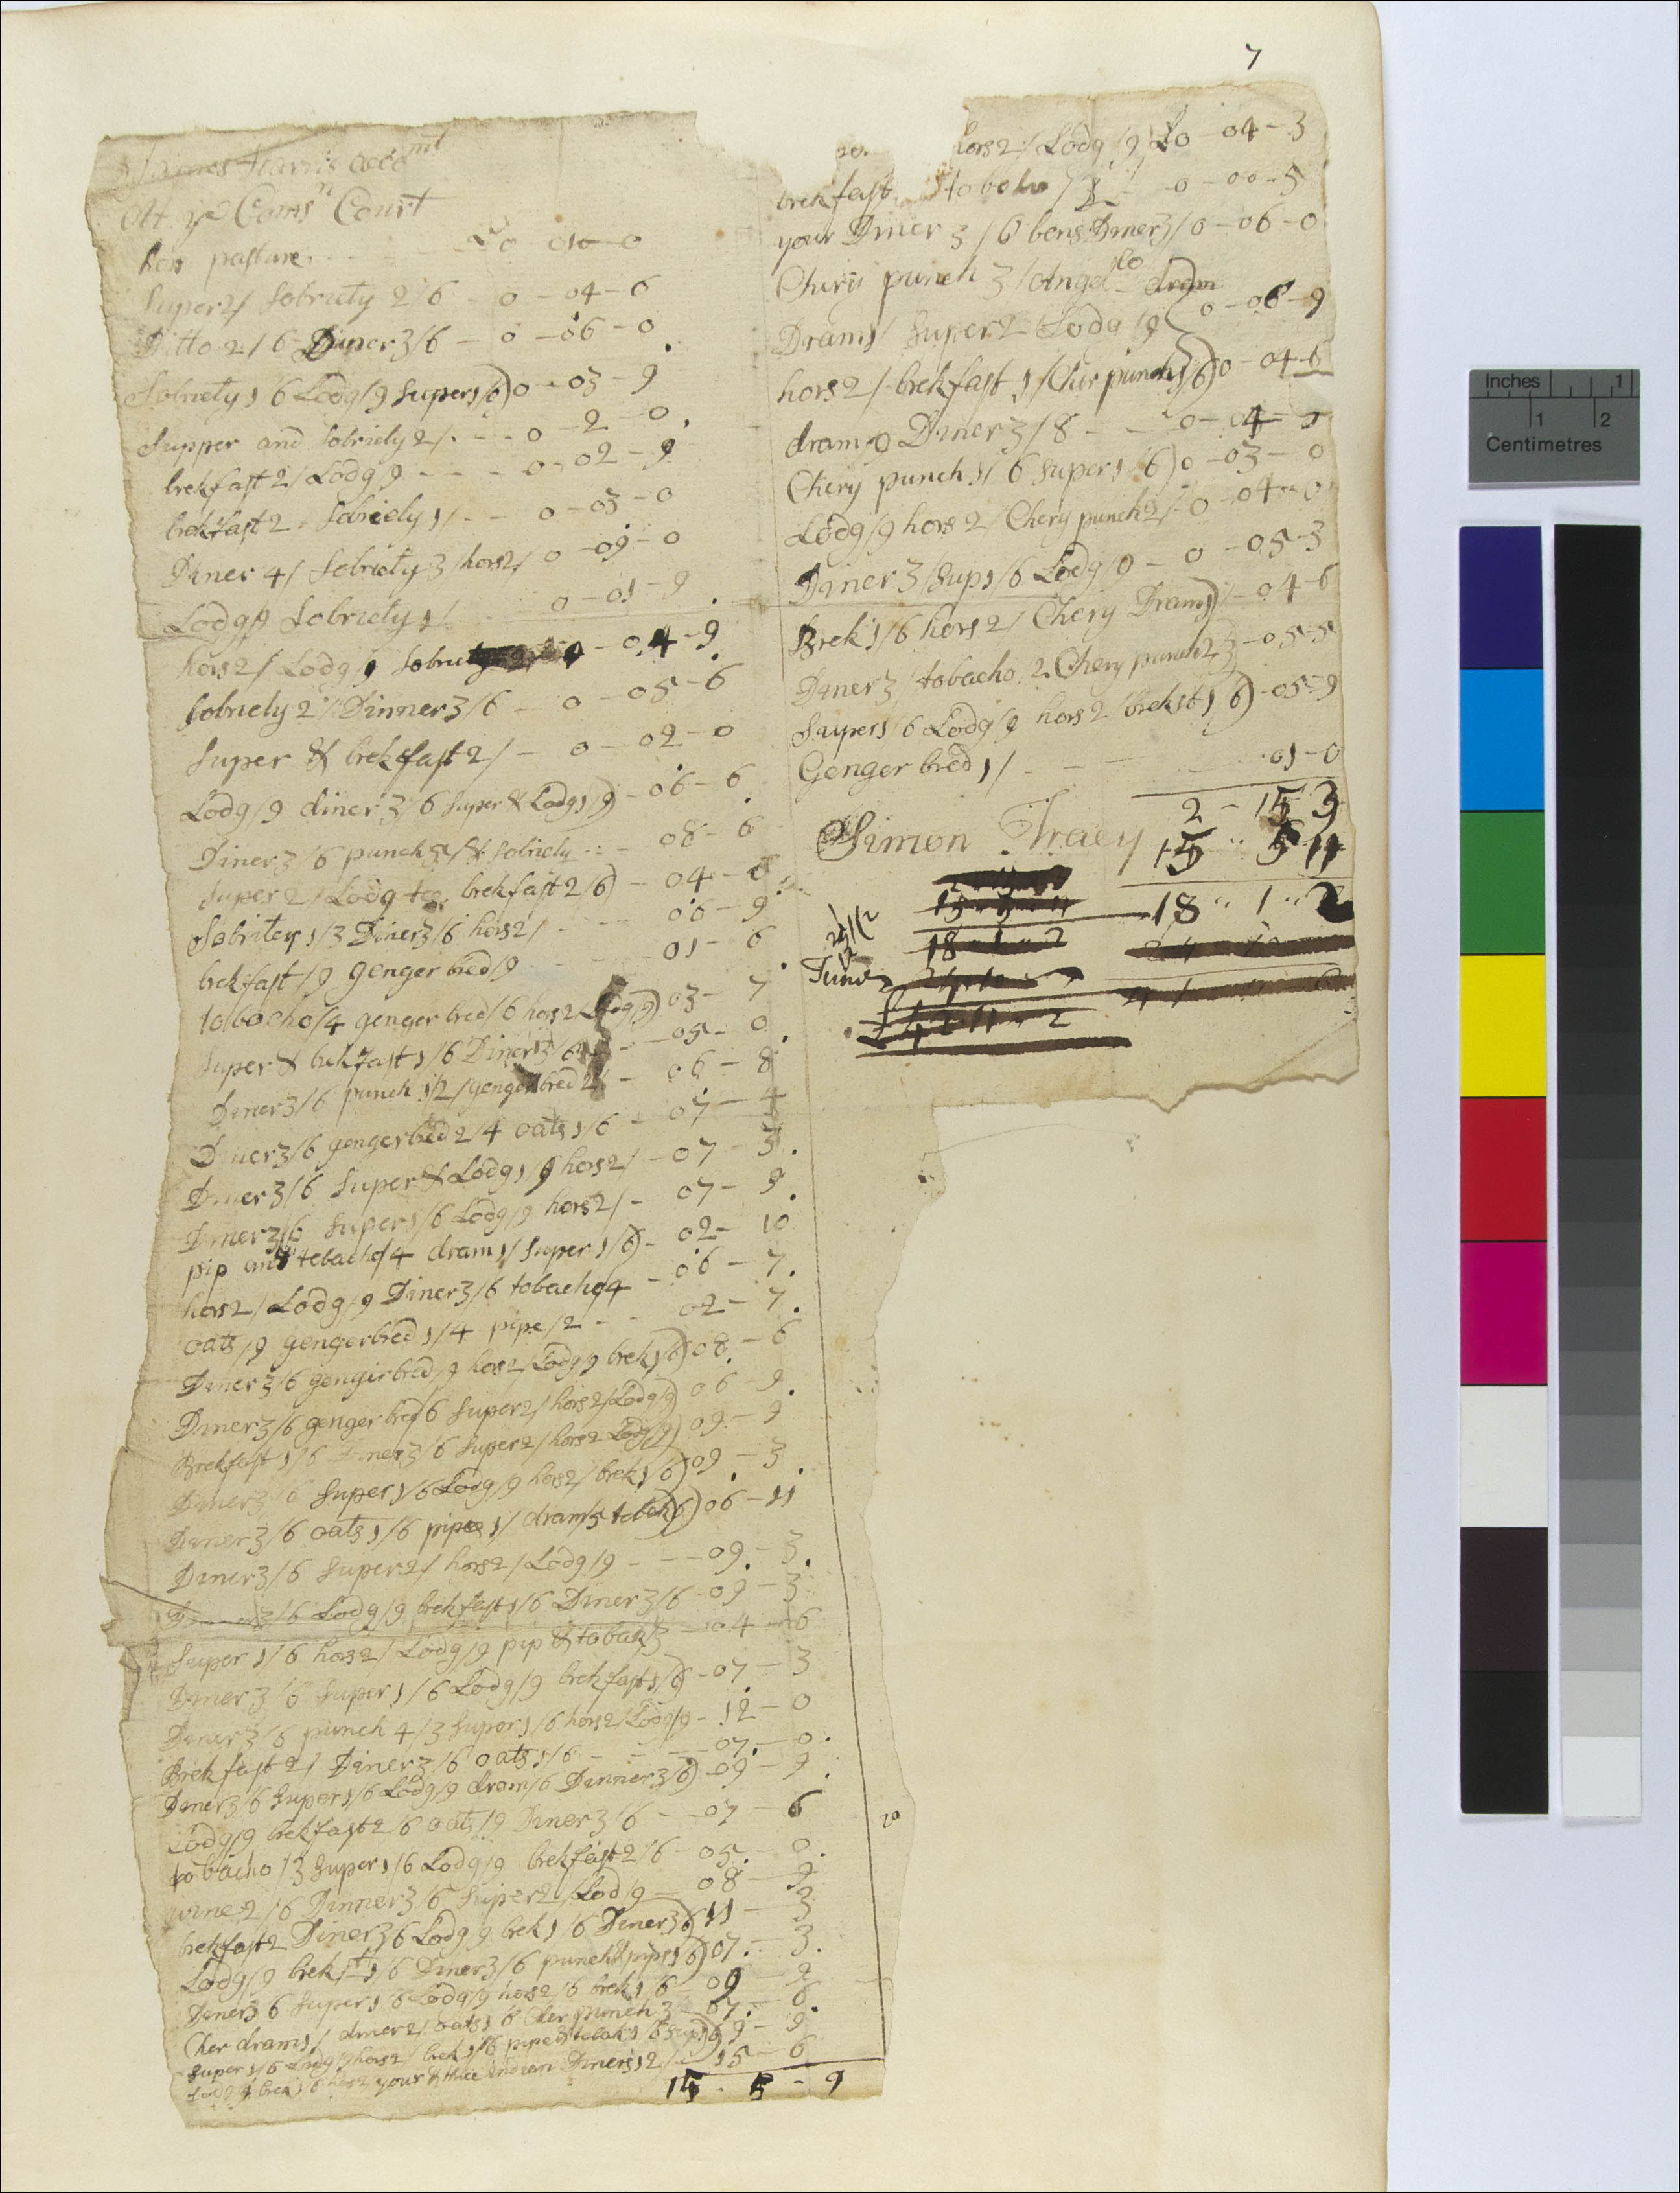 7
James Harris acco mt
Att ye Coms rs Court
hors pasture - - - £0 - 010 - 0
Super 2/ Sobriety 2/6 - 0 - 04 - 6
Ditto 2/6 Diner 3/6 - 0 - 06 - 0
Sobriety 1 6 Lodg/9 Super 1/6) 0 - 03 - 9
Supper and Sobriety 2/ - - 0 - 2 - 0
brekfast 2/ Lodg 9 - - - 0 - 02 - 9
brekfast 2 Sobriety 1/ - - 0 - 03 - 0
Diner 4/ Sobriety 3/ hors 2/ 0 - 09 - 0
Lodg 9 Sobriety 1/ 0 - 01 - 9
hors 2/ Lodg/9 Sobriety - 04 - 9
Sobriety 2/ Dinner 3/6 - 0 - 05 - 6
Super & brekfast 2/ - 0 - 02 - 0
Lodg/9 diner 3/6 Super & Lodg 1/9) - 06 - 6
Diner 3/6 punch & Sobriety - - 08 - 6
Super 2/ Lodg brekfast 2/6) - 04 - 6
Sobritey 1/3 Diner 3/6 hors 2/ - - 06 - 9
brekfast/9 gengerbred/9 - - 01 - 6
tobacho/4 gengerbred/6 hors 2 Lodg/9) 03 - 7
Super & brekfast 1/6 Diner 3/6 - 05 - 0
Diner 3/6 punch 1/2/ gengerbred 2/ - 06 - 8
Diner 3/6 gengerbred 2/4 oats 1/6 - 07 - 4
Diner 3/6 Super & Lodg 1/9 hors 2/ - 07 - 3
Diner 3/6 Super 1/6 Lodg/9 hors 2/ - 07 - 9
pip and tobacho/4 dram 1/ Super 1/6) - 02 - 10
hors 2/ Lodg/9 Diner 3/6 tobacho/4 - 06 - 7
oats/9 gengerbred 1/4 pipe/2 - - 02 - 7
Diner 3/6 gengirbred/9 hors 2/ Lodg/9 brek 1/6) 08 - 6
Diner 3/6 gengerbred 6 Super 2/ hors 2/ Lodg/9) 06 - 9
Brekfast 1/6 Diner 3/6 Super 2/ hors 2 Lodg/9) 09 - 9
Diner 3/6 Super 1/6 Lodg/9 hors 2/ brek 1/6) 09 - 3
Diner 3/6 oats 1/6 pipes 1/ dram/5 6) 06 - 11
Diner 3/6 Super 2/ hors 2/ Lodg/9 - - - 09 - 3
3/6 Lodg/9 brekfast 1/6 Diner 3/6 - 09 - 3
Super 1/6 hors 2/ Lodg/9 pip & tobak/3 - 04 - 6
Diner 3/6 Super 1/6 Lodg/9 brekfast 1/6 - 07 - 3
Diner 3/6 punch 4/3 Super 1/6 hors 2/ Lodg/9 - 12 - 0
Brekfast 2/ Diner 3/6 oats 1/6 - - - 07 - 0
Diner 3/6 Super 1/6 Lodg/9 dram/6 Dinner 3/6) - 09 - 9
Lodg/9 brekfast 2/6 oats/9 Diner 3/6 - - 07 - 6
tobacho/3 Super 1/6 Lodg/9 brekfast 2/6 - 05 - 0
wine 2/6 Dinner 3/6 Super 2/ Lod/9 - 08 - 9
brekfast 2 Diner 3 6 Lodg 9 brek 1/6 Diner 3/6) 11 - 3
Lodg/9 brekfst 1/6 Diner 3/6 punch & pips 1/6) 07 - 3
Diner 3 6 Super 1 6 Lodg/9 hors 2/6 brek 1 6 - 09 - 9
Cher dram 1/ diner 2/ oats 1 6 Cher punch 3 - 07 - 6
Super 1/6 Lodg/9 hors 2/ brek 1/6 pipe & tobak 1/6 Sup 9 - 9
Lodg 9 brek 1 6 hors 2 your & thre indian Diners 12/ - 15 - 6
15 - 5 - 9
20
hors 2/ Lodg/9 £0 - 04 - 3
brekfast tobako - 0 - 00 - 5
your Diner 3/ bens Diner 3/ 0 - 06 - 0
Chery punch 3/ Angel co dram
Dram 1/ Super 2 Lodg/9 0 - 06 - 9
hors 2/ brekfast 1/ Cher punch 1/6) 0 - 04 - 6
dram Diner 3/8 - - 0 - 04 -
Chery punch 1/6 Super 1/6) 0 - 03 - 0
Lodg/9 hors 2/ Chery punch 2/ - 0 - 04 - 0
Diner 3/ Sup 1/6 Lodg/9 - 0 - 05 - 3
Brek 1/6 hors 2/ Chery Dram 1) - 04 - 6
Diner 3/ tobacho 2 Chery punch 2/3 - 05 - 5
Super 1/6 Lodg/9 hors 2 brekst 1 6) - 05 - 9
Genger bred 1/ - - - 01 - 0
2 - 15 3
Simon Tracy 15 " 5 11
18 " 1 " 2
15 - 5 - 11
18 - 1 - 2